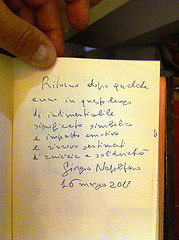 Ritorno dopo qualche
anno in questo luogo
di indimenticabile
significato simbolico
e impatto emotivo
e rinnovo sentimenti
di amicizia e solidarietà
Giorgio Napolitano
16 marzo 2011